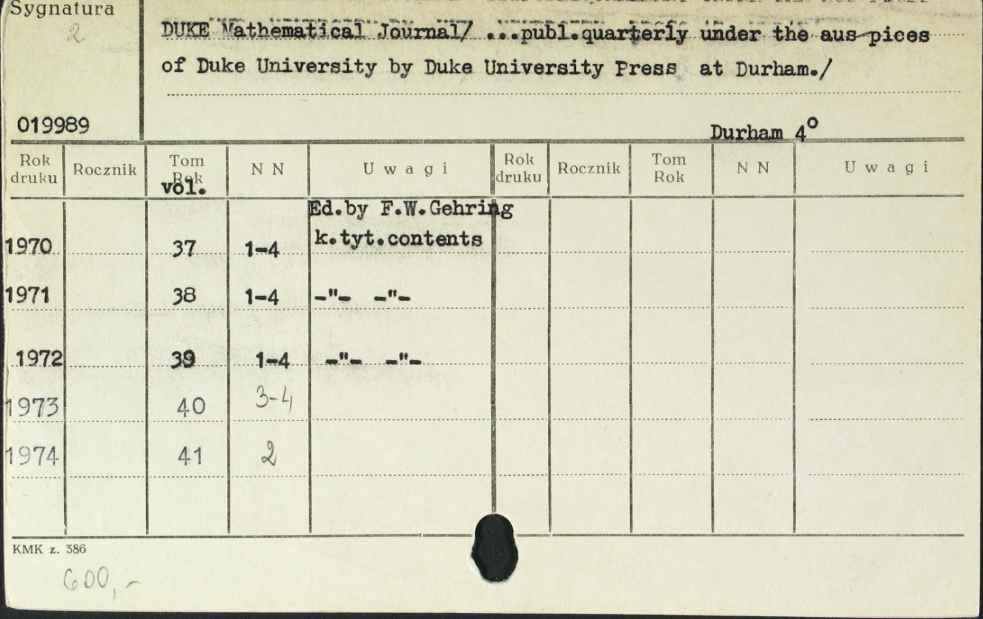 Sygnatura
2
DUKE Mathematical Journal/ ...publ.quarterly under the aus pices
of Duke University by Duke University Press at Durham./
019989
Durham 4º
Rok druku Rocznik Tom Rok N N Uwagi Rok druku Rocznik Tom Rok N N Uwagi
vol.
Ed.by F.W.Gehring
1970 37 1-4 k.tyt.contents
1971 38 1-4 -"- -"-
1972 39 1-4 -"- -"-
1973 40 3-4
1974 41 2
KMK z. 386
600,-